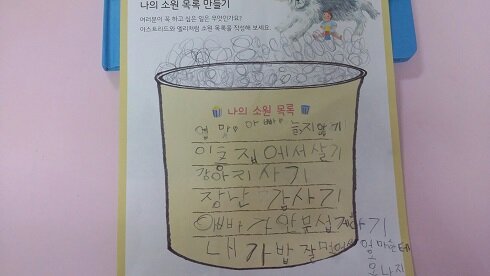 나의 소원 목록 만들기
여러분이 꼭 하고 싶은 일은 무엇인가요?
아스트리드와 엘리처럼 소원 목록을 작성해 보세요.
나의 소원 목록
엄마 아빠 하지않기
이층집에서살기
강아지사기
장난감사기
아빠가안무섭게하기
내가밥잘먹어서엄마한테
혼나지